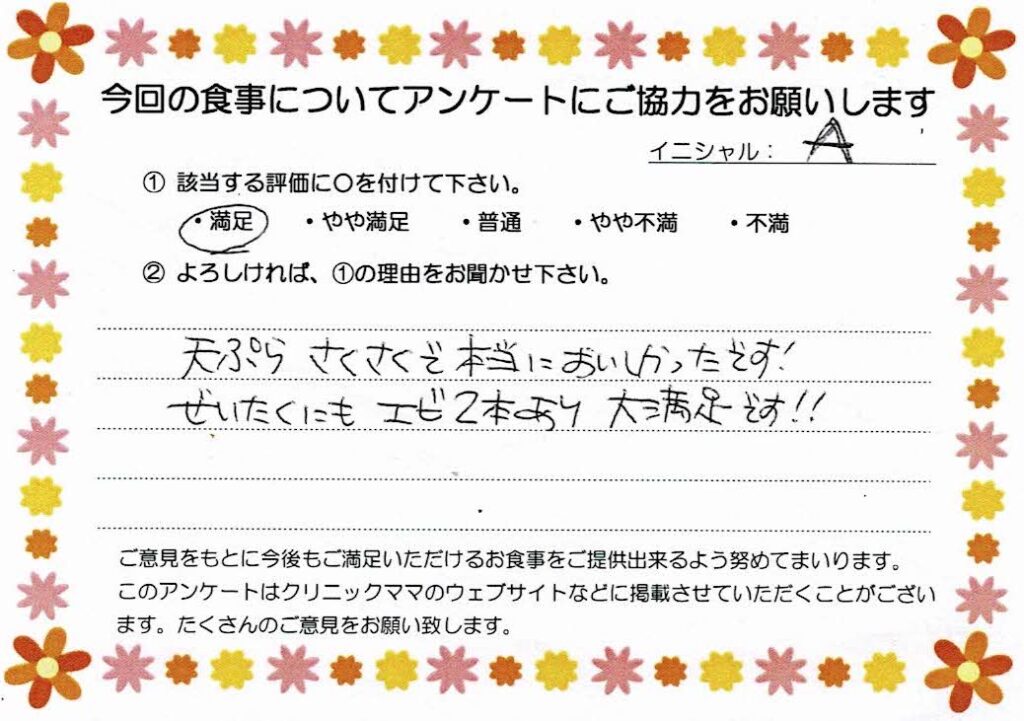 今回の食事についてアンケートにご協力をお願いします
イニシャル: A
① 該当する評価に○を付けて下さい。
・満足 ・やや満足 ・普通 ・やや不満 ・不満
② よろしければ、①の理由をお聞かせ下さい。
天ぷら さくさくで 本当においしかったです!
ぜいたくにも エビ2本あり 大満足です!!
ご意見をもとに今後もご満足いただけるお食事をご提供出来るよう努めてまいります。
このアンケートはクリニックママのウェブサイトなどに掲載させていただくことがござい
ます。たくさんのご意見をお願い致します。